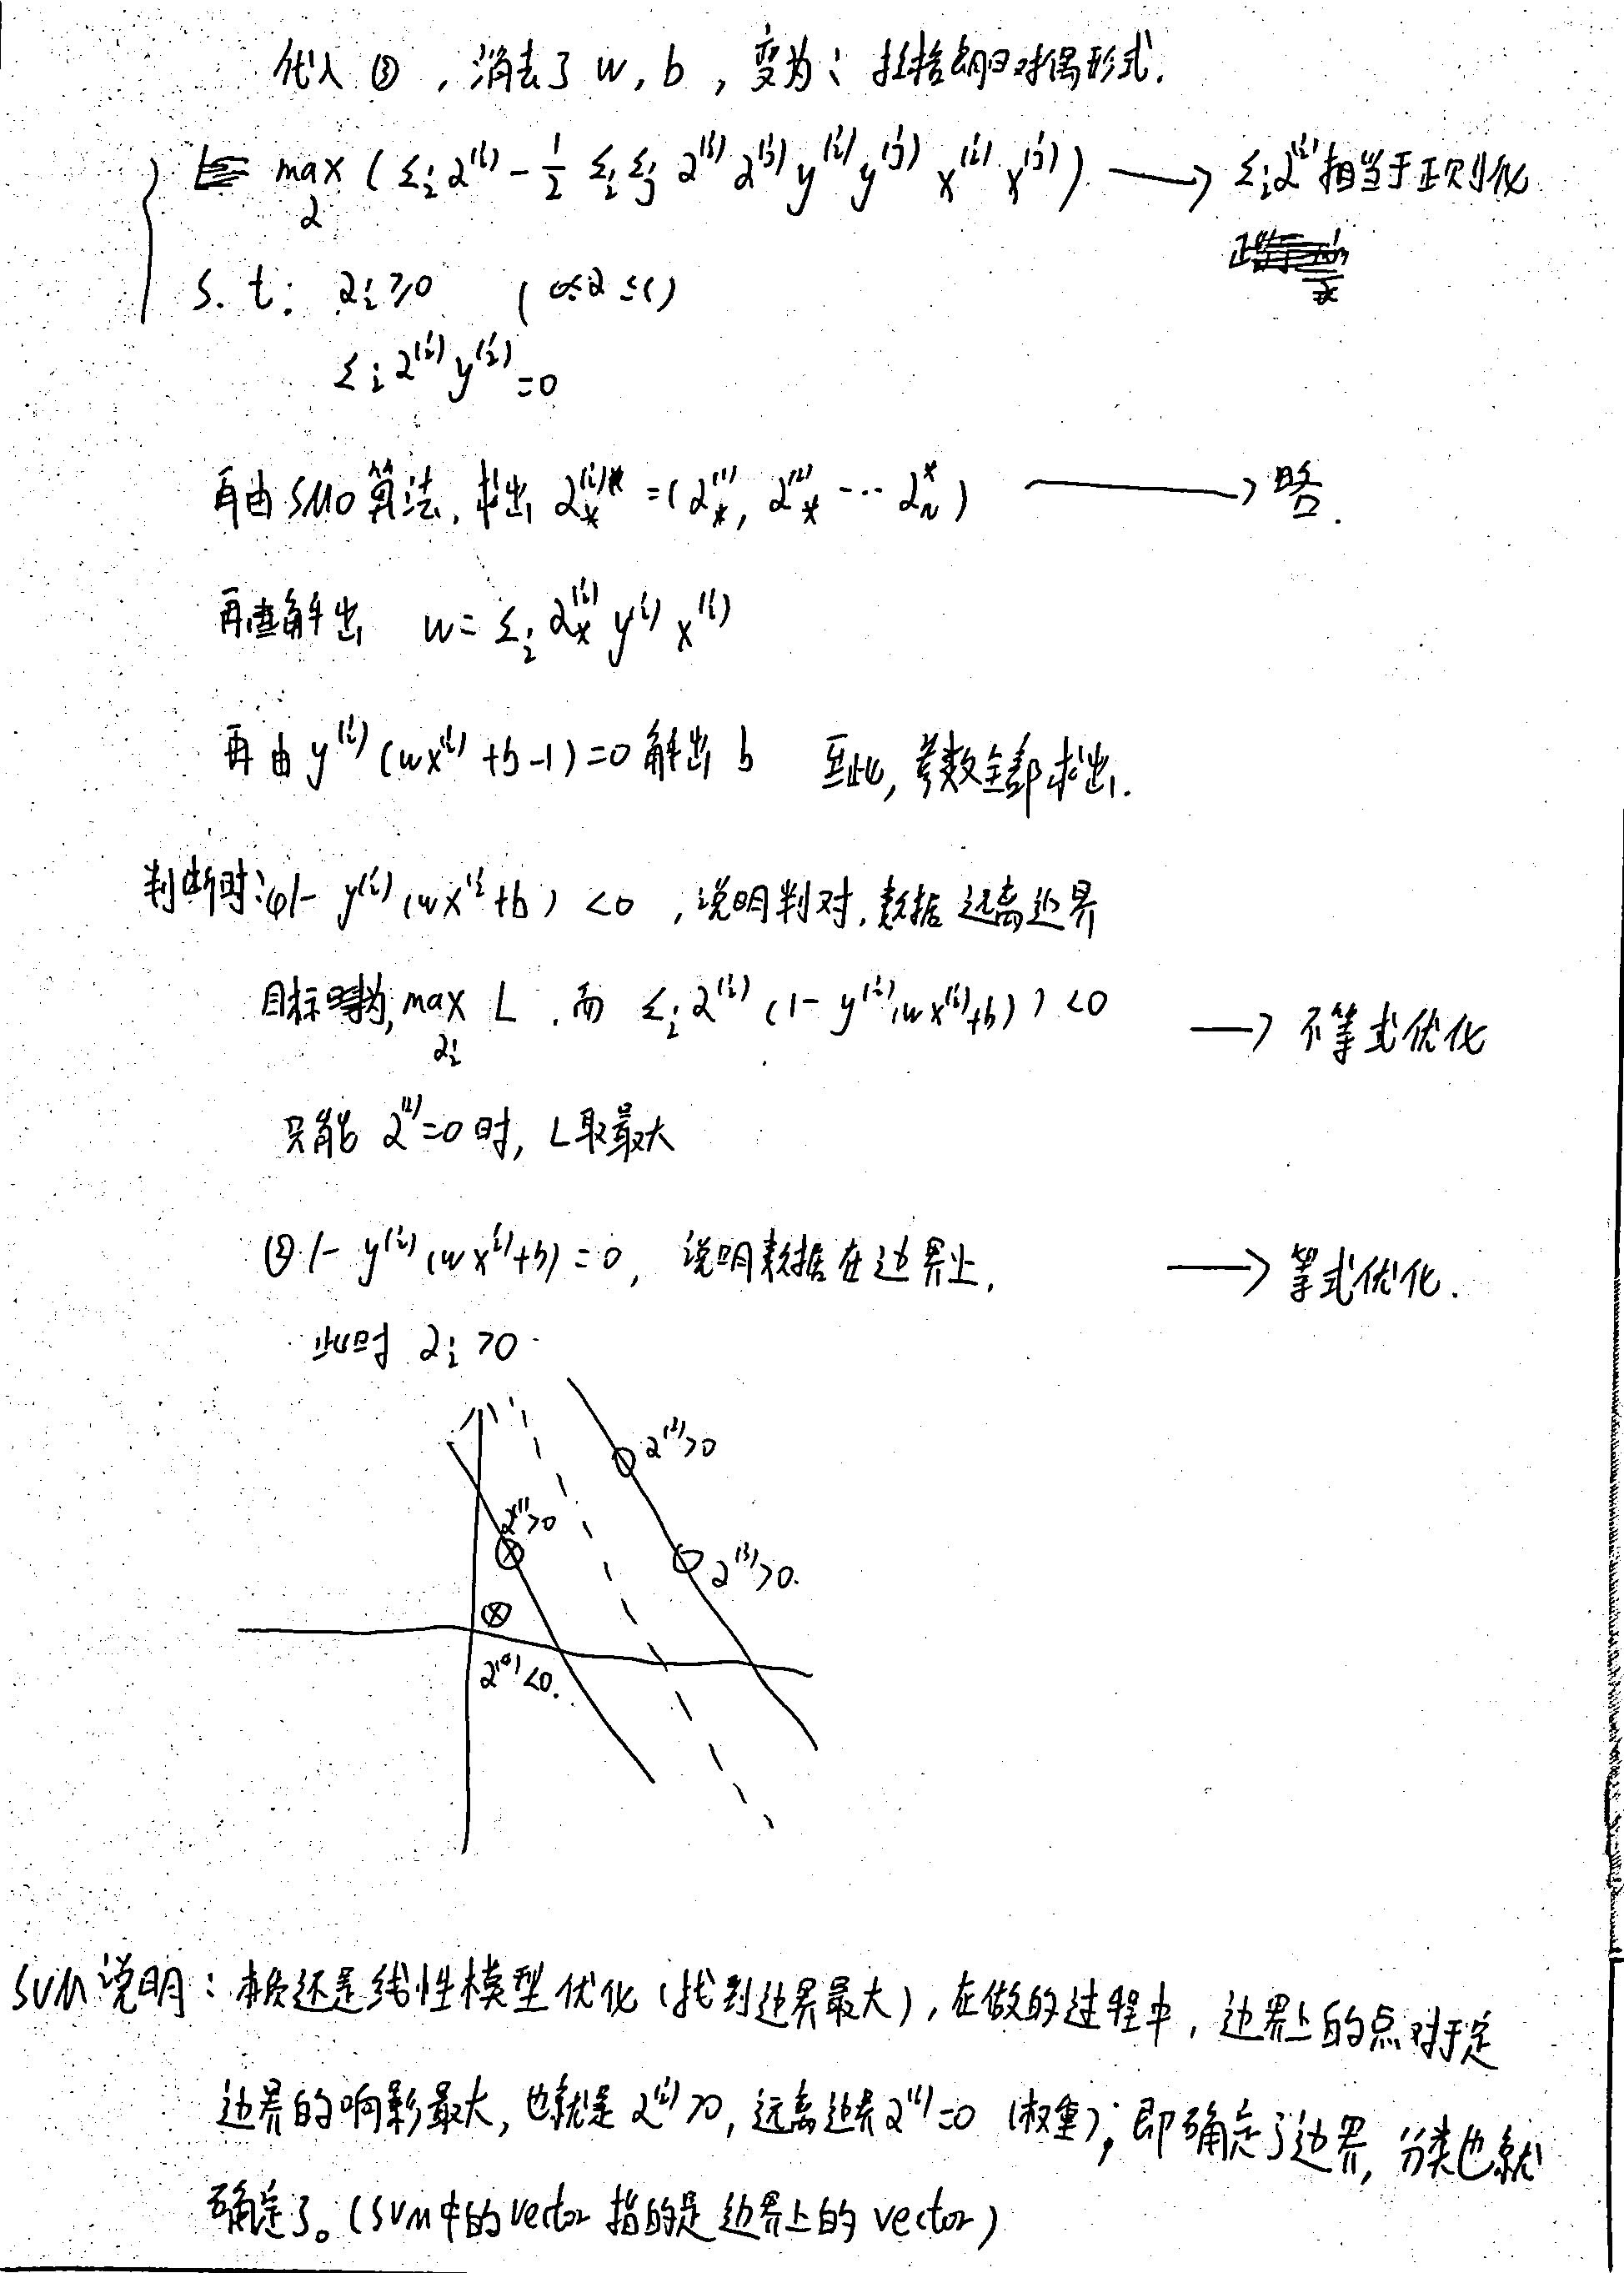 代入③，消去了 w, b ，变为：拉格朗日对偶形式.
max ( Σi α⁽ⁱ⁾ - 1/2 Σi Σj α⁽ⁱ⁾ α⁽ʲ⁾ y⁽ⁱ⁾ y⁽ʲ⁾ x⁽ⁱ⁾ x⁽ʲ⁾ ) ⟶ Σi α⁽ⁱ⁾ 相当于正则化
α
s. t: αi ≥ 0 ( 0≤α≤C )
Σi α⁽ⁱ⁾ y⁽ⁱ⁾ = 0
再由SMO算法, 求出 α⁽ⁱ⁾* = ( α⁽¹⁾*, α⁽²⁾* … αN* ) ⟶ 略.
再解出 w = Σi α⁽ⁱ⁾* y⁽ⁱ⁾ x⁽ⁱ⁾
再由 y⁽ⁱ⁾ (wx⁽ⁱ⁾ + b - 1) = 0 解出 b 至此, 参数全部求出.
判断时: ① 1 - y⁽ⁱ⁾ (wx⁽ⁱ⁾ + b) < 0 , 说明判对, 数据远离边界
目标为, max L , 而 Σi α⁽ⁱ⁾ (1 - y⁽ⁱ⁾(wx⁽ⁱ⁾+b)) < 0 ⟶ 不等式优化
αi
只能 α⁽ⁱ⁾ = 0 时, L取最大
② 1 - y⁽ⁱ⁾ (wx⁽ⁱ⁾+b) = 0, 说明数据在边界上, ⟶ 等式优化.
此时 αi > 0
α⁽²⁾>0
α⁽¹⁾>0
α⁽³⁾>0.
α⁽⁰⁾<0.
SVM说明：本质还是线性模型优化（找到边界最大）, 在做的过程中, 边界上的点对于定
边界的响影最大, 也就是 α⁽ⁱ⁾>0, 远离边界 α⁽ⁱ⁾=0 (权重); 即确定了边界, 分类也就
确定了。(SVM中的vector 指的是 边界上的 vector)